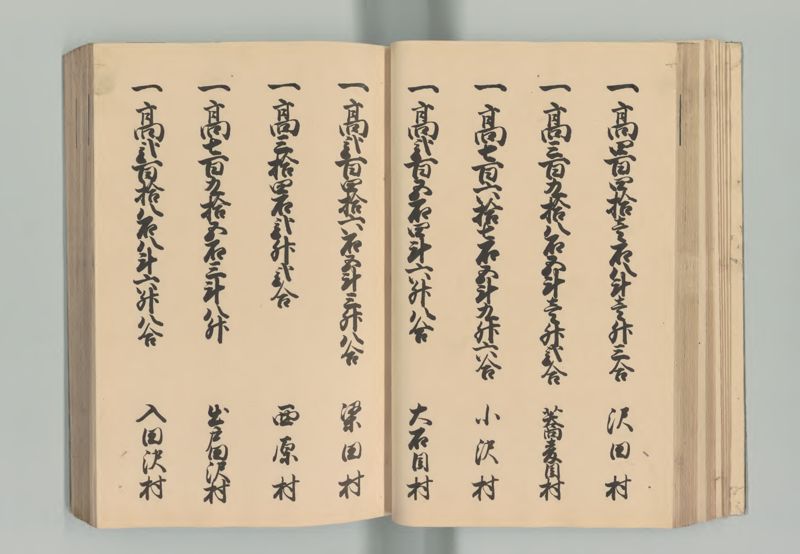 一高四百四拾壱石八斗壱升三合 沢田村
一高三百九拾八石五斗壱升弐合 蕎麦目村
一高七百六拾七石五斗九升六合 小沢村
一高弐百五石四斗六升八合 大石目村
一高弐百四拾六石五斗三升八合 梁田村
一高三拾四石弐升弐合 西原村
一高七百九拾五石三斗八升 出戸田沢村
一高弐百拾八石八斗六升八合 入田沢村